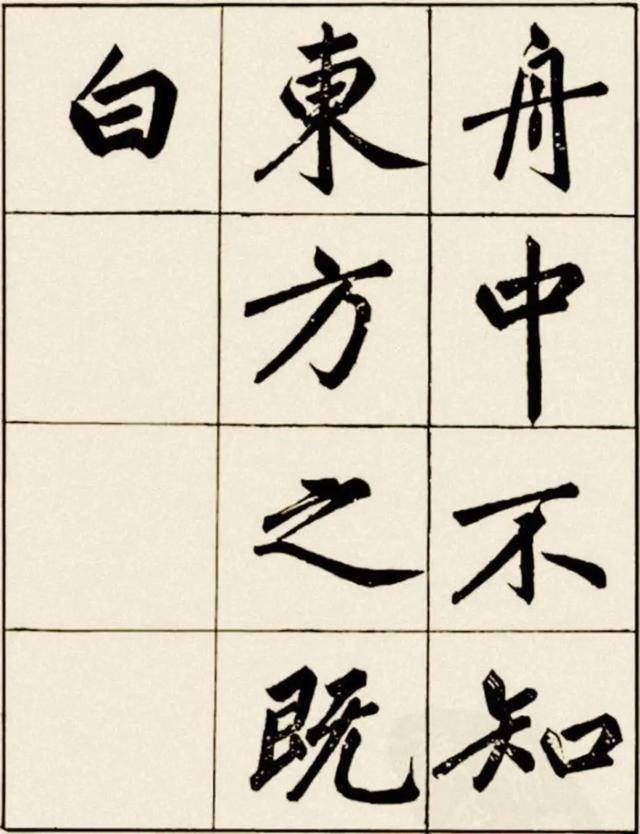 舟中不知
東方之既
白